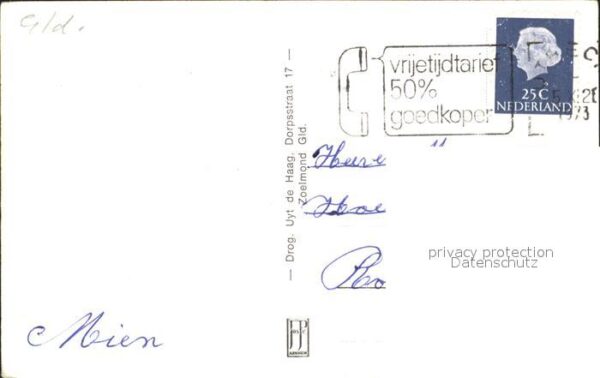 Gld.
vrijetijdtarief
50%
goedkoper
25C
NEDERLAND
1973
— Drog. Uyt de Haag, Dorpsstraat 17 —
Zoelmond Gld.
privacy protection
Datenschutz
Mien
JosPé
ARNHEM